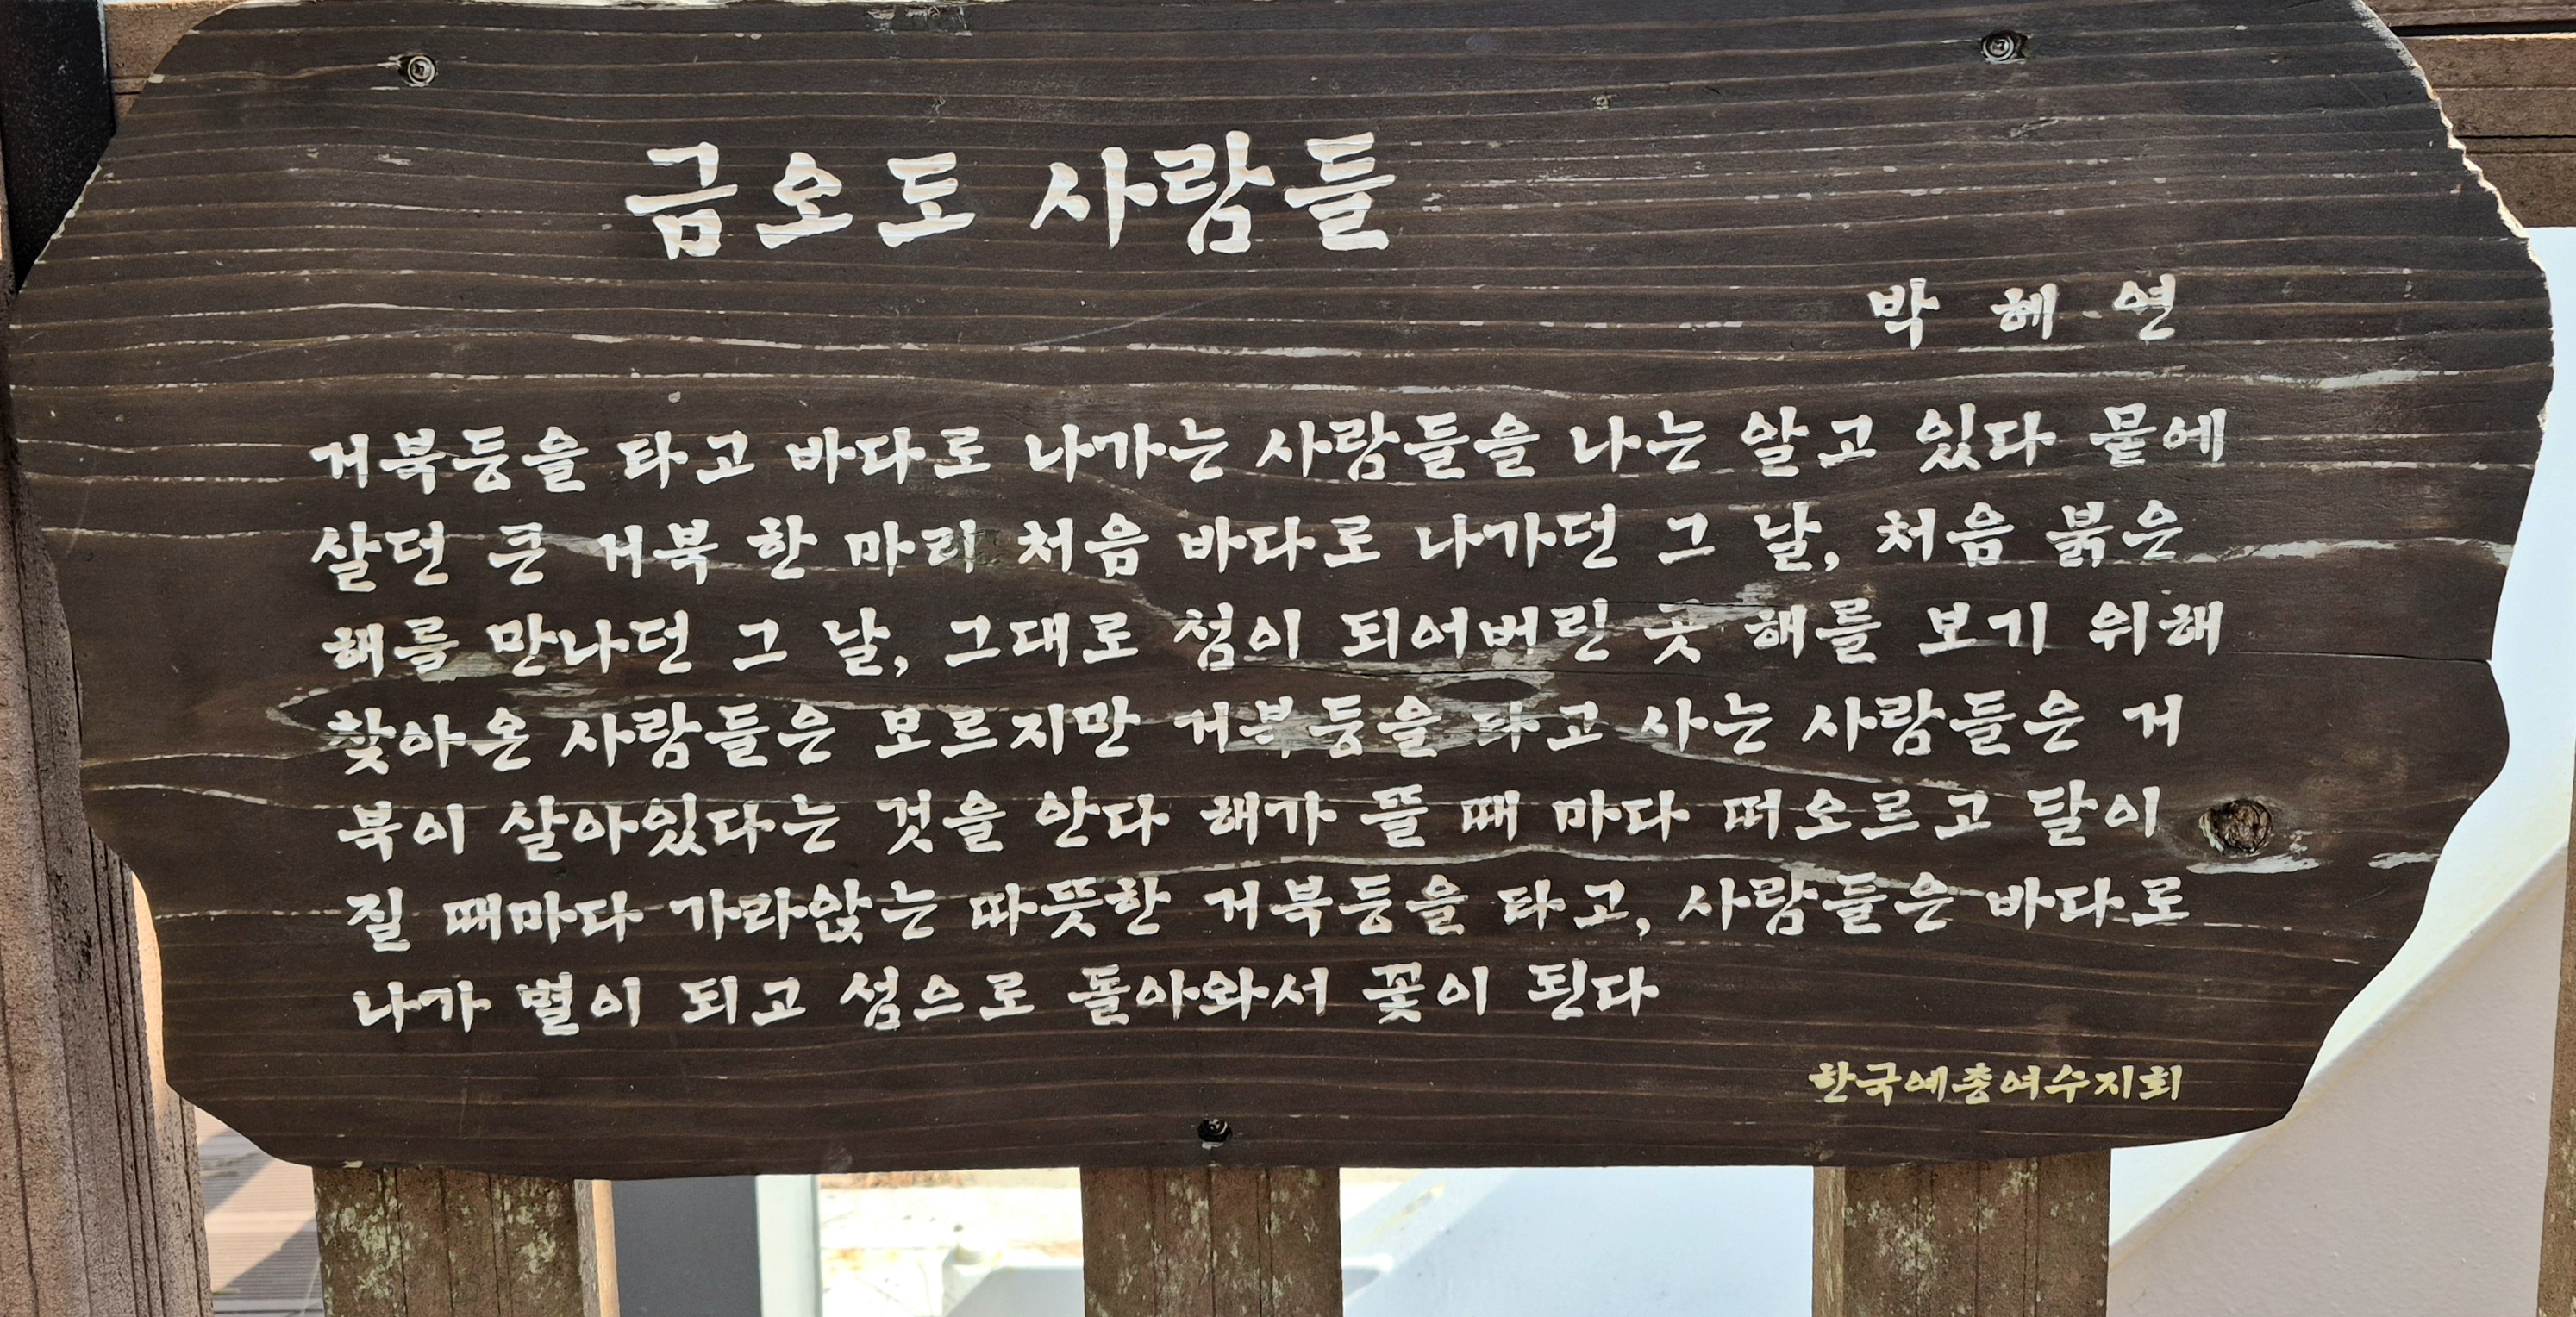 금오도 사람들
박 혜 연
거북등을 타고 바다로 나가는 사람들을 나는 알고 있다 뭍에
살던 큰 거북 한 마리 처음 바다로 나가던 그 날, 처음 붉은
해를 만나던 그 날, 그대로 섬이 되어버린 곳 해를 보기 위해
찾아온 사람들은 모르지만 거북등을 타고 사는 사람들은 거
북이 살아있다는 것을 안다 해가 뜰 때 마다 떠오르고 달이
질 때마다 가라앉는 따뜻한 거북등을 타고, 사람들은 바다로
나가 별이 되고 섬으로 돌아와서 꽃이 된다
한국예총여수지회